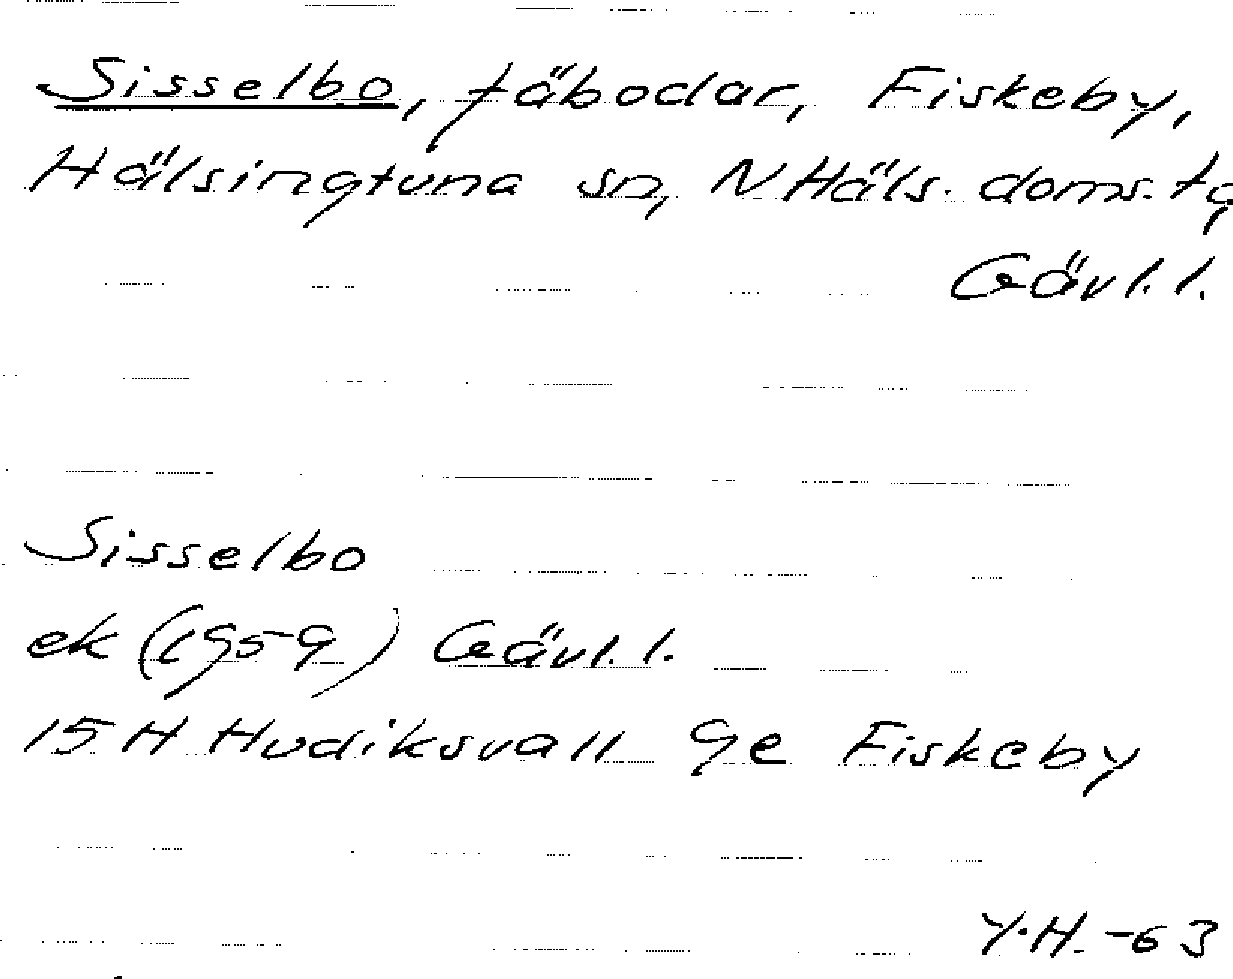 Sisselbo, fäbodar, Fiskeby,
Hälsingtuna sn, N Häls. doms. tg
Gävl. l.
Sisselbo
ek (1959) Gävl. l.
15 H Hudiksvall 9e Fiskeby
Y.H. -63